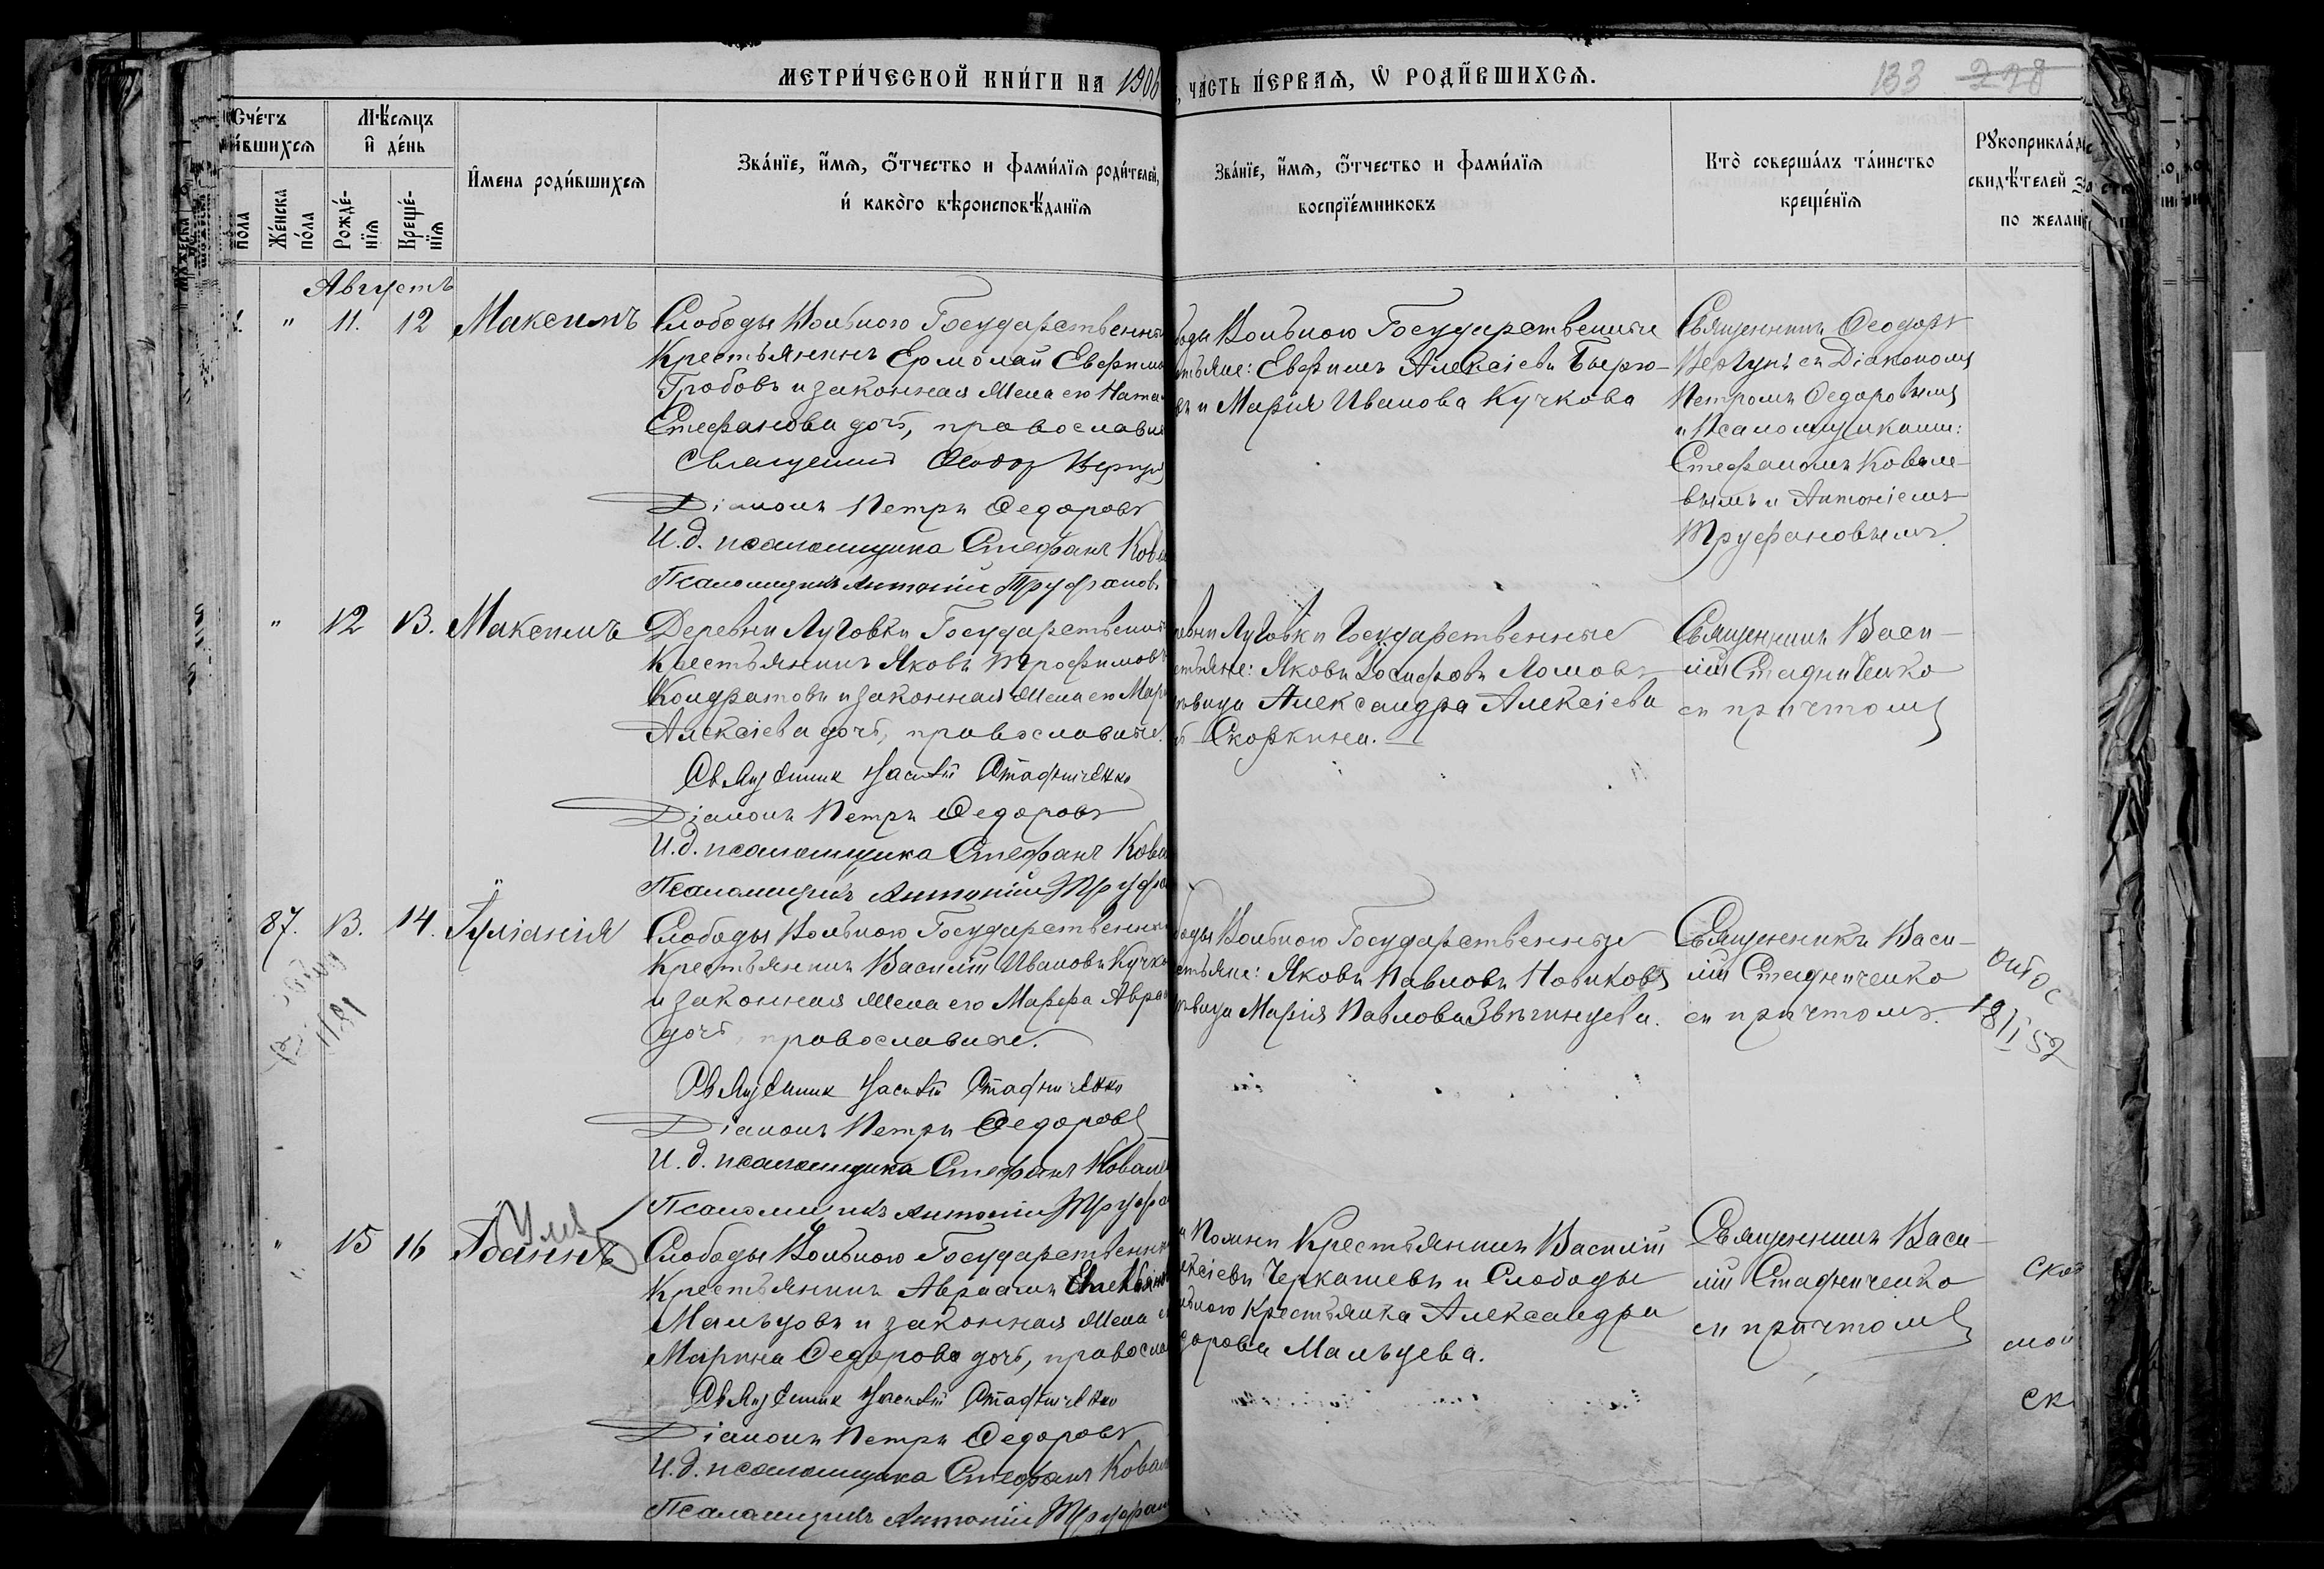 МЕТРИ́ЧЕСКОЙ КНИ́ГИ НА 1906
, ЧА́СТЬ ПЕ́РВАЯ, Ѡ РОДИ́ВШИХСЯ.
133 228
Сче́тъ
и́вшихся
Мѣ́сяцъ
и де́нь
по́ла
Же́нска
по́ла
Рожде́-
нїя
Креще́-
нїя
И́мена роди́вшихся
Зва́нїе, и́мя, ѻ́тчество и фами́лїя роди́телей,
и́ како́го вѣроисповѣ́данїя
Зва́нїе, и́мя, ѻ́тчество и фами́лїя
воспрїе́мниковъ
Кто̀ соверша́лъ та́инство
креще́нїя
Рꙋкоприкла́д
свидѣ́телей за
по желані
Августъ
" 11. 12 Максимъ
Слободы Вольною Государственны
Крестьянинъ Ермолай Евфимо
Гробовъ и законная жена его Ната
Стефанова дочь, православн
Священникъ Ѳеодор Вергун
Діаконъ Петръ Ѳедоровъ
И.д. псаломщика Стефанъ Кова
Псаломщикъ Антоній Труфановъ
Вольною Государственные
Евфимъ Алексіевъ
и Марія Иванова Кучкова
Священникъ Ѳеодоръ
Вергунъ съ Діакономъ
Петромъ Ѳедоровымъ
и Псаломщиками:
Стефаномъ Ковале-
вымъ и Антоніемъ
Труфановымъ.
" 12 13. Максимъ
Деревни Луговки Государственны
Крестьянинъ Яковъ Трофимовъ
Кондратовъ и законная жена его Мар
Алексіева дочь, православные.
Священник Василій Стадниченко
Діаконъ Петръ Ѳедоровъ
И.д. псаломщика Стефанъ Кова
Псаломщикъ Антоній Труфа
Луговки Государственные
Яковъ Іосифовъ Ломовъ
Александра Алексіева
Скоркина.
Священникъ Васи-
лій Стадниченко
съ причтомъ
87. 13. 14. Іуліанія
Слободы Вольною Государственны
Крестьянинъ Василій Ивановъ Кучко
и законная жена его Марфа Авра
дочь, православные.
Священник Василій Стадниченко
Діаконъ Петръ Ѳедоровъ
И.д. псаломщика Стефанъ Ковале
Псаломщикъ Антоній Труфа
Вольною Государственные
Яковъ Павловъ Новиковъ
Марія Павлова Звягинцева.
Священникъ Васи-
лій Стадниченко
съ причтомъ.
" 15 16 Іоаннъ
Слободы Вольною Государственны
Крестьянинъ Авраамъ
Мальцовъ и законная жена
Марина Ѳедорова дочь, правосла
Священник Василій Стадниченко
Діаконъ Петръ Ѳедоровъ
И.д. псаломщика Стефанъ Ковал
Псаломщикъ Антоній Труфан
Крестьянинъ Василій
Черкашевъ и Слободы
Крестьянка Александра
Мальцева.
Священникъ Васи-
лій Стадниченко
съ причтомъ